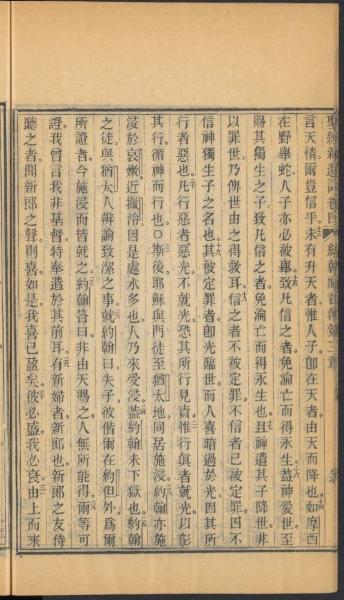 約翰福音傳第三章
言天情爾豈信乎未有升天者惟人子卽在天者由天而降也如摩西
在野舉蛇人子亦必被舉致凡信之者免淪亡而得永生蓋神愛世至
賜其獨生之子致凡信之者免淪亡而得永生也且神遣其子降世非
以罪世乃俾世由之得救耳信之者不被定罪不信者已被定罪因不
信神獨生子之名也其被定罪者卽光臨世而人喜暗過於光因其所
行者惡也凡行惡者惡光不就光恐其所行見責惟行眞者就光以彰
其行循神而行也〇斯後耶穌與門徒至猶太地同居施浸約翰亦施
浸於哀嫩近撒冷因是處水多也人乃來受浸蓋約翰未下獄也約翰
之徒與猶太人辨論致潔之事就約翰曰夫子彼偕爾在約但外爲爾
所證者今施浸而皆就之約翰答曰非由天賜之人無所能得爾等可
證我曾言我非基督特奉遣於其前耳有新婦者新郎也新郎之友侍
聽之者聞新郎之聲則喜如是我喜已盈矣彼必盛我必衰由上而來